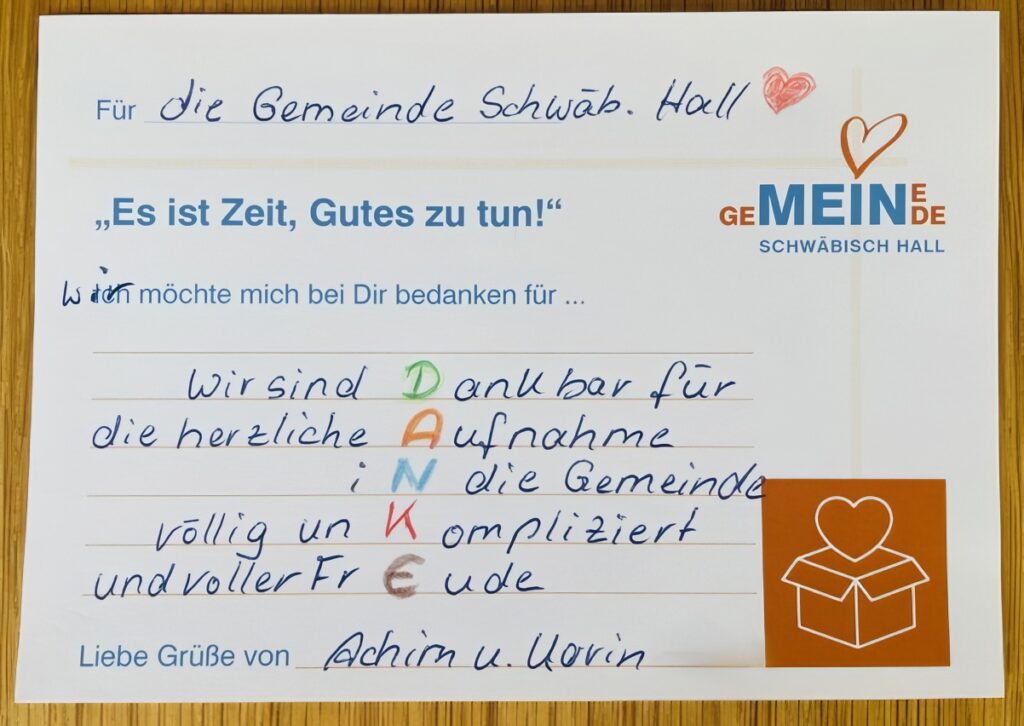 Für die Gemeinde Schwäb. Hall
GEMEINDE
SCHWÄBISCH HALL
„Es ist Zeit, Gutes zu tun!“
wir Ich möchte mich bei Dir bedanken für ...
wir sind Dankbar für
die herzliche Aufnahme
iN die Gemeinde
völlig unKompliziert
und voller FrEude
Liebe Grüße von Achim u. Karin